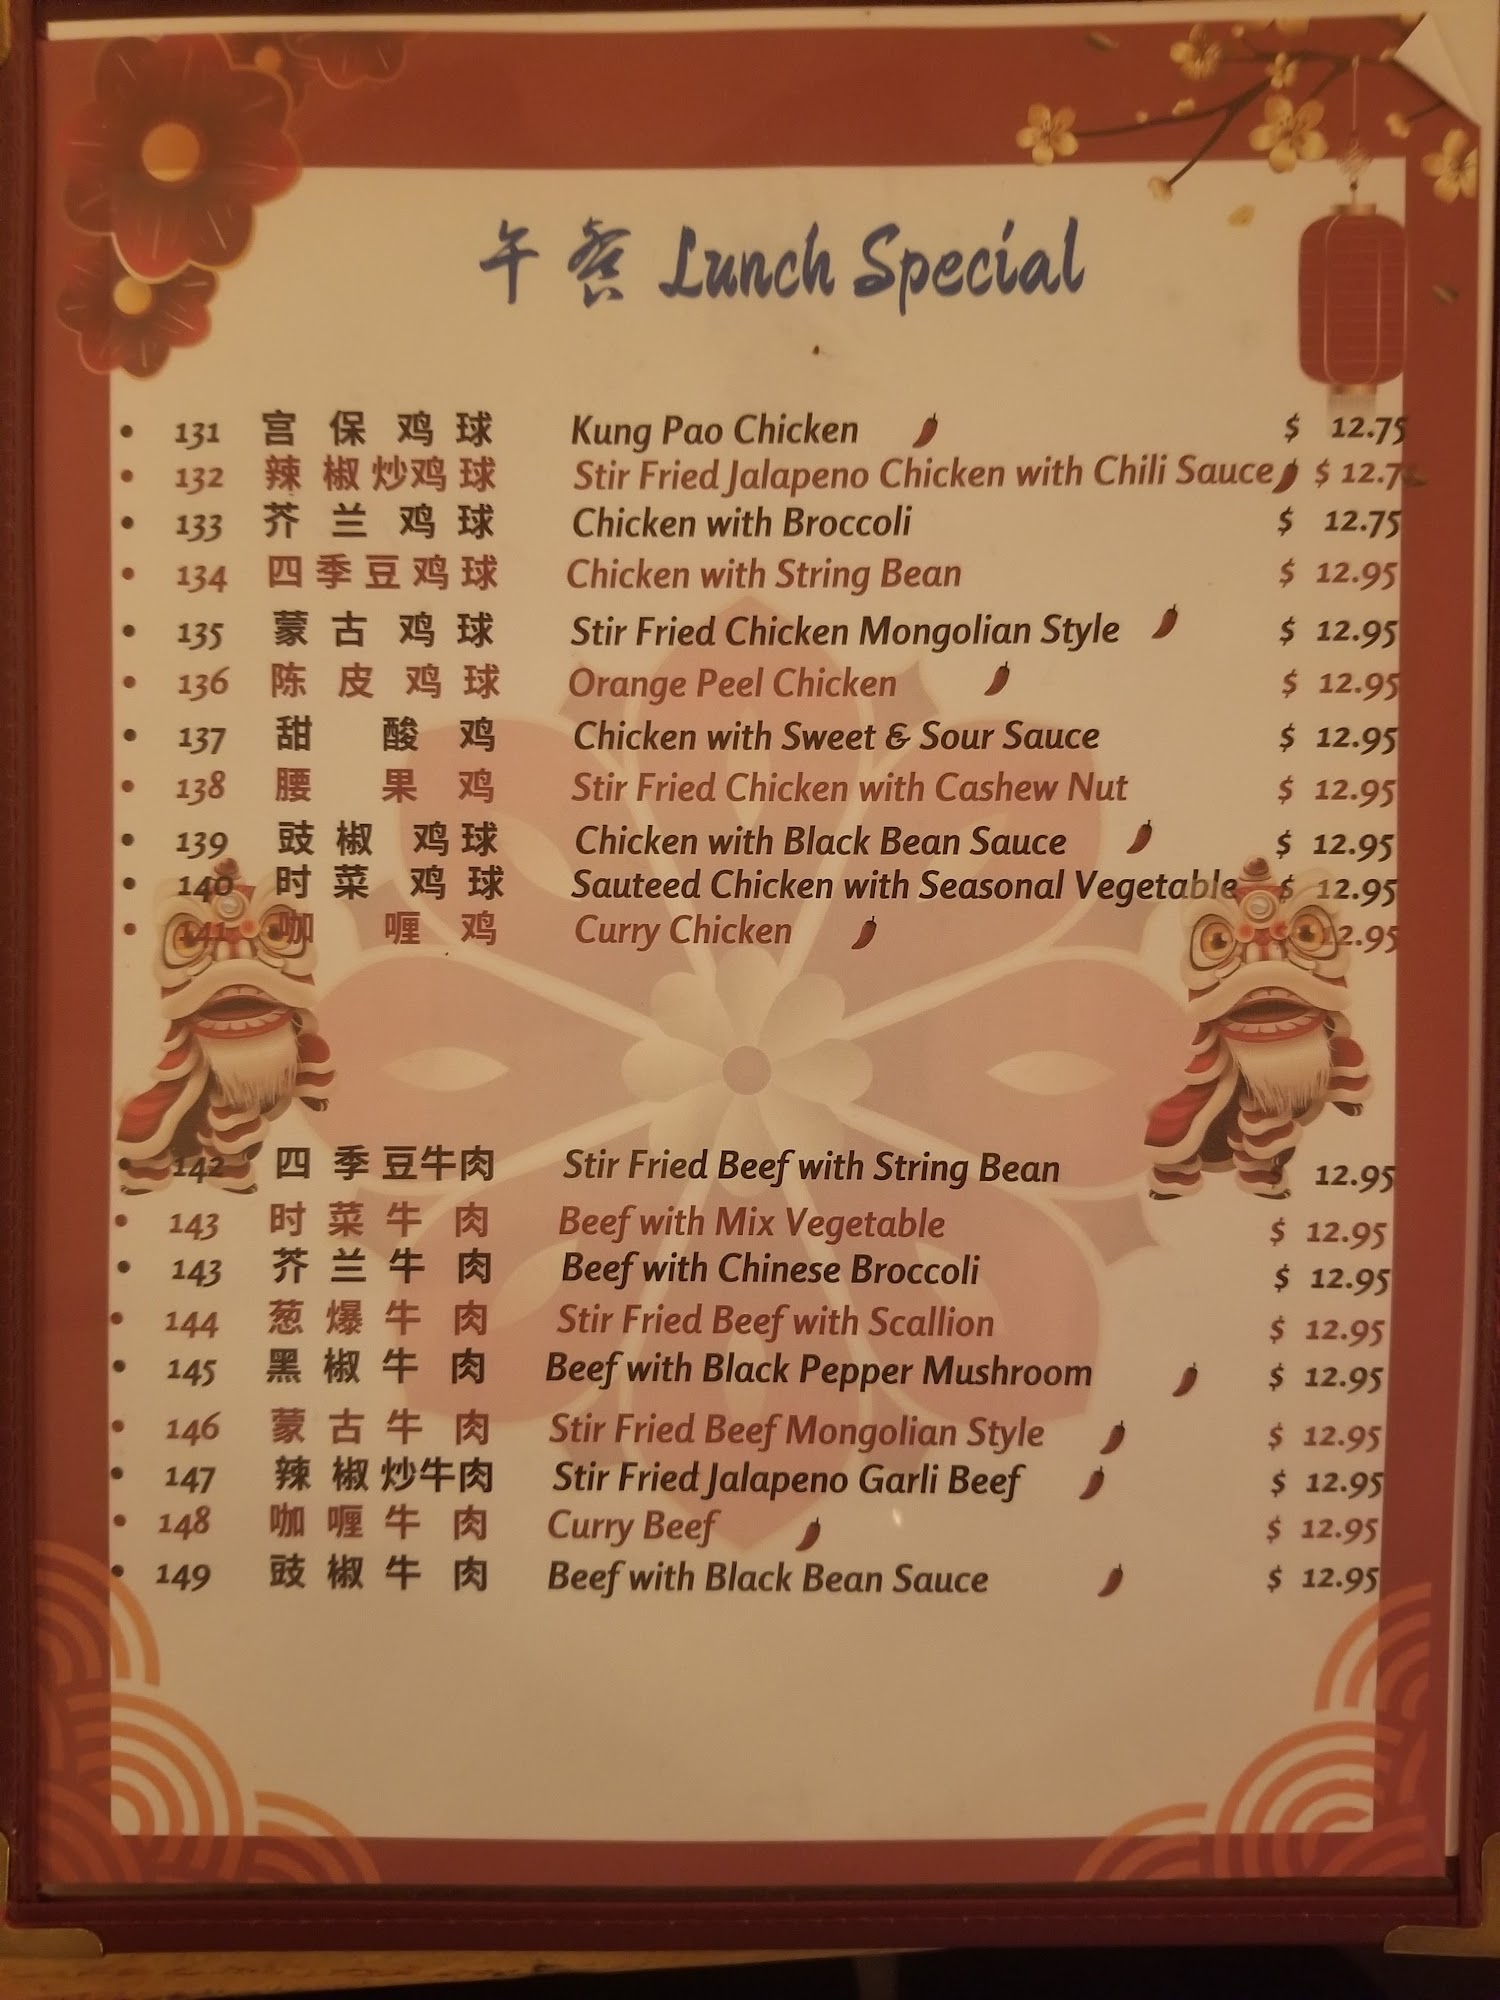 午餐 Lunch Special
131 宫保鸡球 Kung Pao Chicken $ 12.75
132 辣椒炒鸡球 Stir Fried Jalapeno Chicken with Chili Sauce $ 12.7
133 芥兰鸡球 Chicken with Broccoli $ 12.75
134 四季豆鸡球 Chicken with String Bean $ 12.95
135 蒙古鸡球 Stir Fried Chicken Mongolian Style $ 12.95
136 陈皮鸡球 Orange Peel Chicken $ 12.95
137 甜酸鸡 Chicken with Sweet & Sour Sauce $ 12.95
138 腰果鸡 Stir Fried Chicken with Cashew Nut $ 12.95
139 豉椒鸡球 Chicken with Black Bean Sauce $ 12.95
140 时菜鸡球 Sauteed Chicken with Seasonal Vegetable $ 12.95
141 咖喱鸡 Curry Chicken 2.95
142 四季豆牛肉 Stir Fried Beef with String Bean $ 12.95
143 时菜牛肉 Beef with Mix Vegetable $ 12.95
143 芥兰牛肉 Beef with Chinese Broccoli $ 12.95
144 葱爆牛肉 Stir Fried Beef with Scallion $ 12.95
145 黑椒牛肉 Beef with Black Pepper Mushroom $ 12.95
146 蒙古牛肉 Stir Fried Beef Mongolian Style $ 12.95
147 辣椒炒牛肉 Stir Fried Jalapeno Garli Beef $ 12.95
148 咖喱牛肉 Curry Beef $ 12.95
149 豉椒牛肉 Beef with Black Bean Sauce $ 12.95